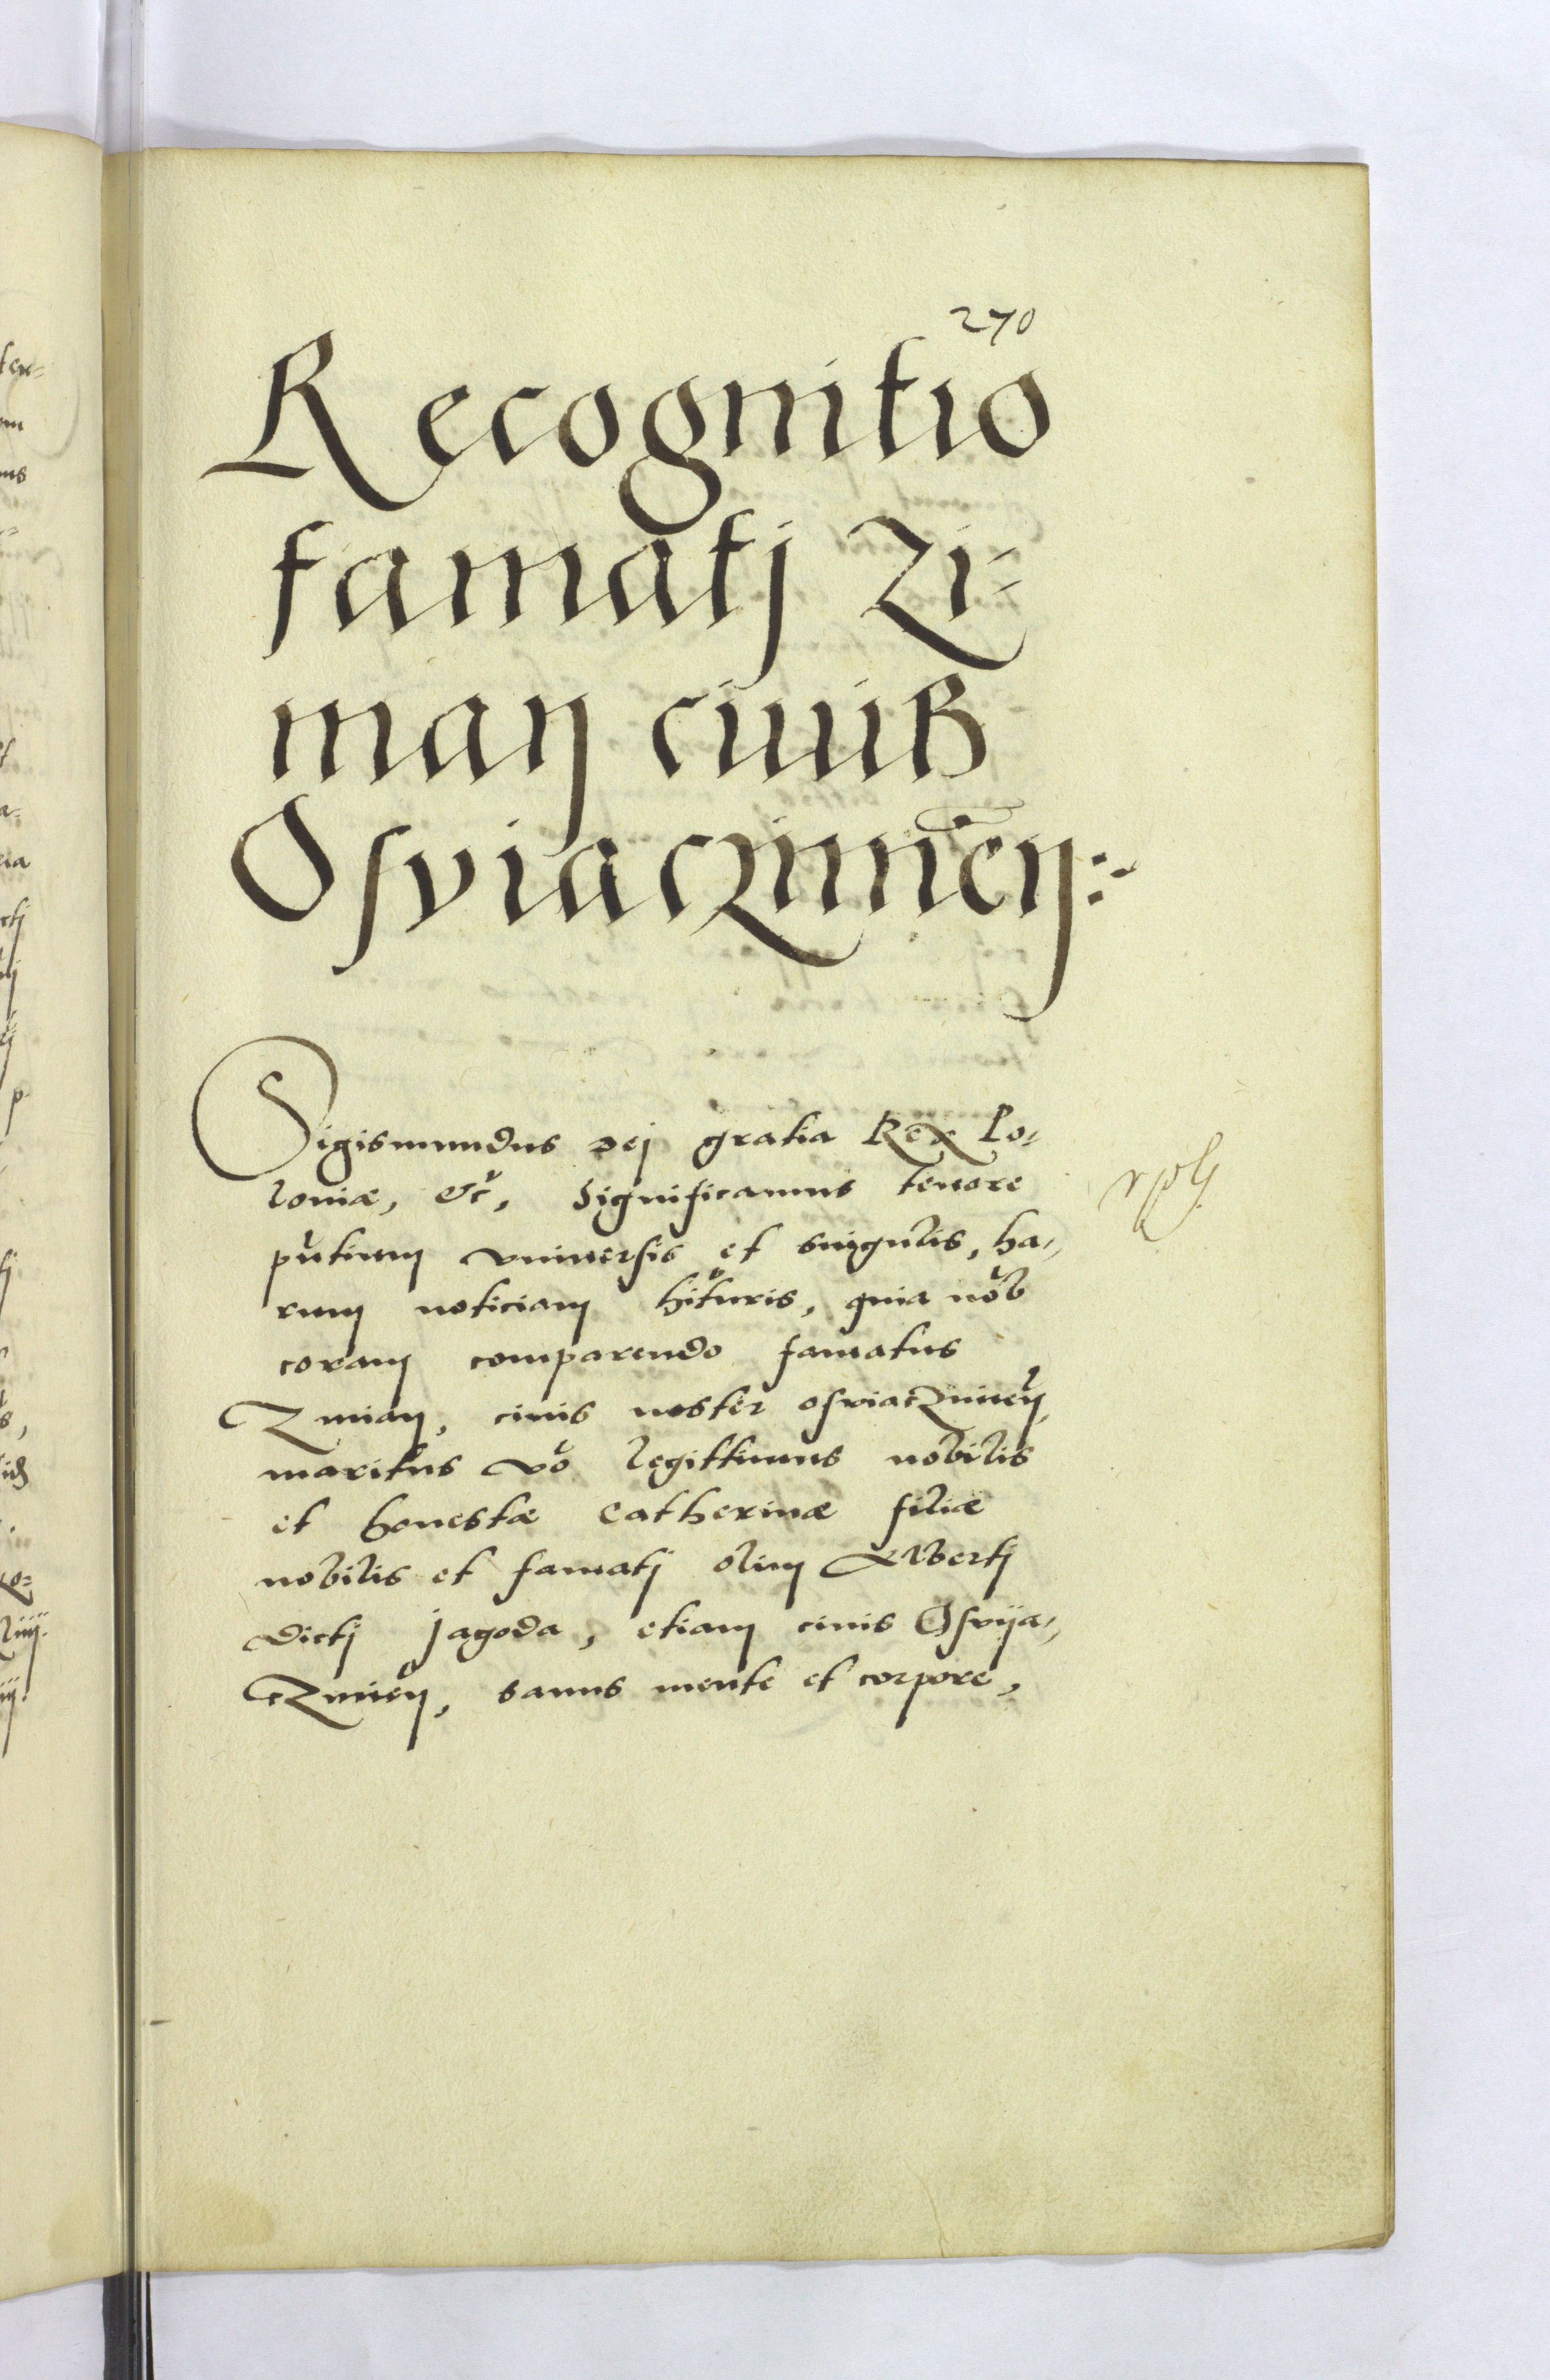 270
Recognitio
famatj Zi=
man ciuis
Osviaczimen̄:
Sigismundus Dej gratia Rex Po-
loniæ, &c, Significamus tenore
pn̄tium vniuersis et singulis, ha-
rum noticiam hituris, quia nob
coram comparendo famatus
Zmian, ciuis noster osviaczimen̄,
maritus vo legittimus nobilis
et honestæ Catherinæ filiæ
nobilis et famatj olim Alberti
dictj Jagoda, etiam ciuis Osvija-
czimen̄, sanus mente et corpore,